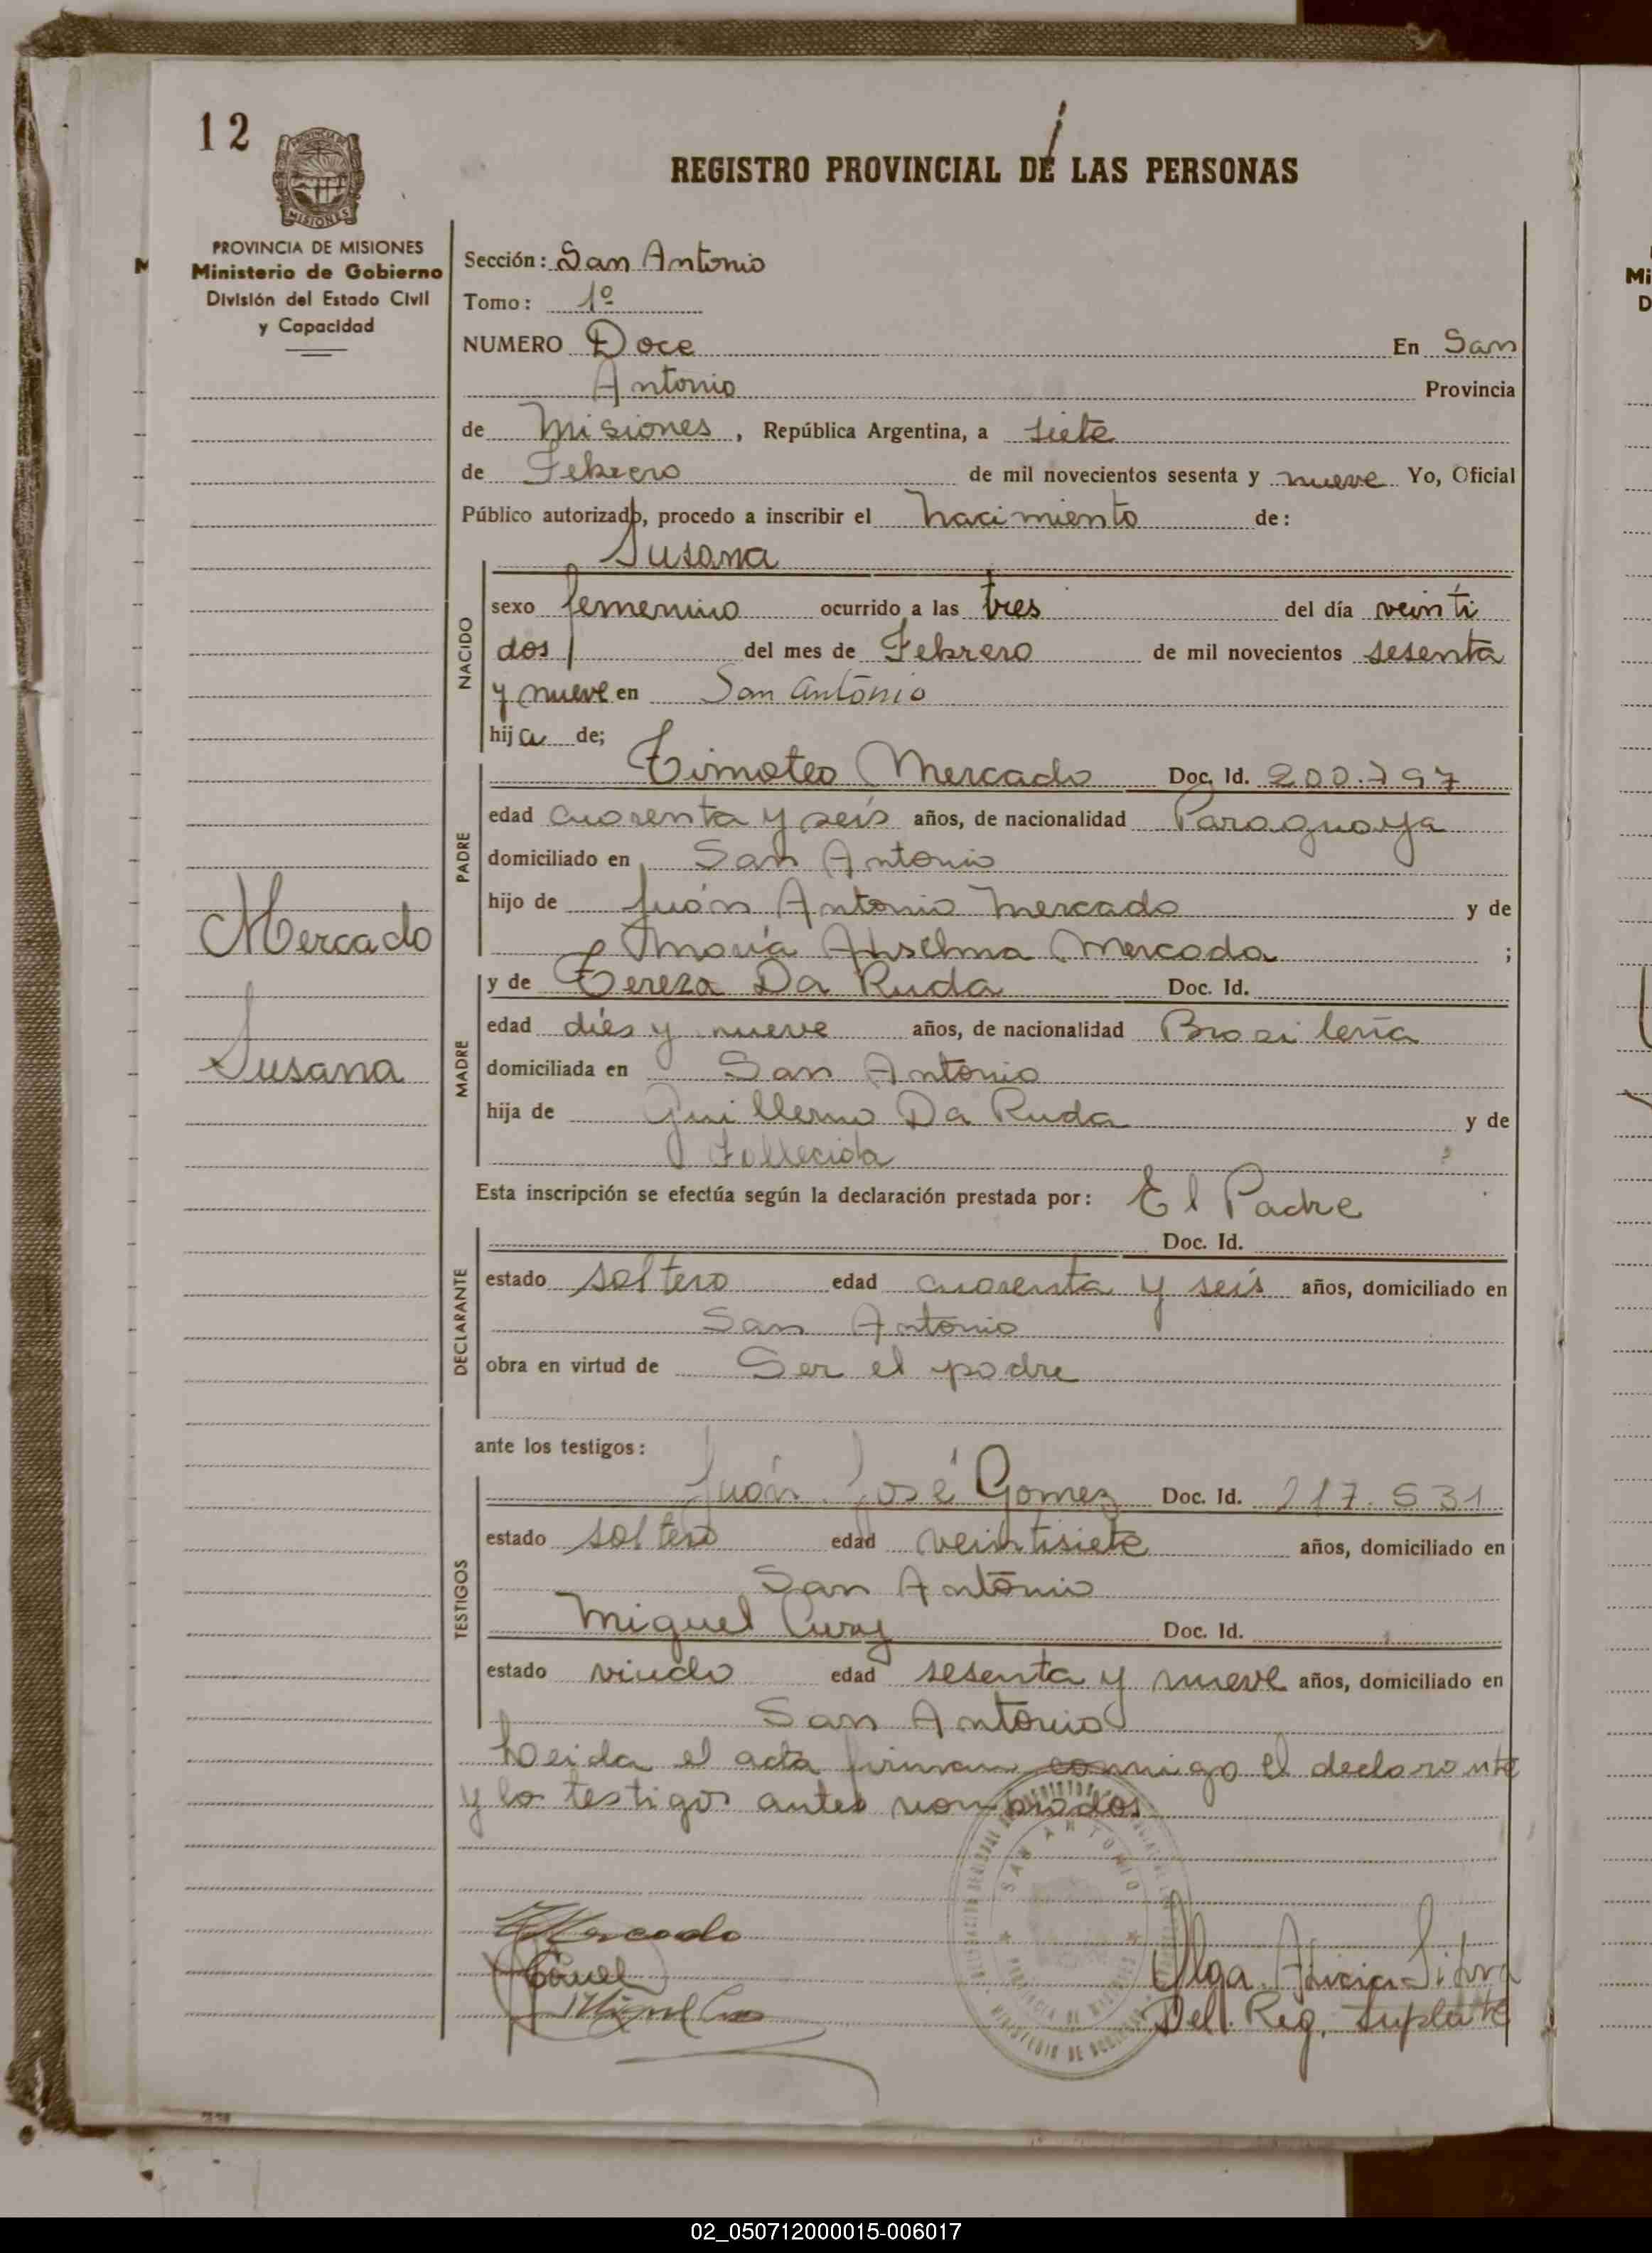 12
REGISTRO PROVINCIAL DE LAS PERSONAS
MISIONES
PROVINCIA DE MISIONES
Ministerio de Gobierno
División del Estado Civil
y Capacidad
Sección: San Antonio
Tomo: 1º
NUMERO Doce En San
Antonio Provincia
de Misiones, República Argentina, a siete
de Febrero de mil novecientos sesenta y nueve Yo, Oficial
Público autorizado, procedo a inscribir el nacimiento de:
Susana
NACIDO
sexo femenino ocurrido a las tres del día veinti
dos del mes de Febrero de mil novecientos sesenta
y nueve en San Antonio
hija de;
Timoteo Mercado Doc. Id. 200.797
PADRE
edad cuarenta y seis años, de nacionalidad Paraguaya
domiciliado en San Antonio
hijo de Juán Antonio Mercado y de
María Anselma Mercado ;
Mercado
Susana
y de Tereza Da Ruda Doc. Id.
MADRE
edad diés y nueve años, de nacionalidad Brasileña
domiciliada en San Antonio
hija de Guillermo Da Ruda y de
Fallecida
Esta inscripción se efectúa según la declaración prestada por: El Padre
Doc. Id.
DECLARANTE
estado soltero edad cuarenta y seis años, domiciliado en
San Antonio
obra en virtud de Ser el padre
ante los testigos:
Juán José Gomez Doc. Id. 217.531
TESTIGOS
estado soltero edad veintisiete años, domiciliado en
San Antonio
Miguel Doc. Id.
estado viudo edad sesenta y nueve años, domiciliado en
San Antonio
Leida el acta firman conmigo el declarante
y lo testigos antes nombrados
SAN ANTONIO
Mercado
Miguel
Olga Alicia Silva
Del. Reg. Suplete
02_050712000015-006017